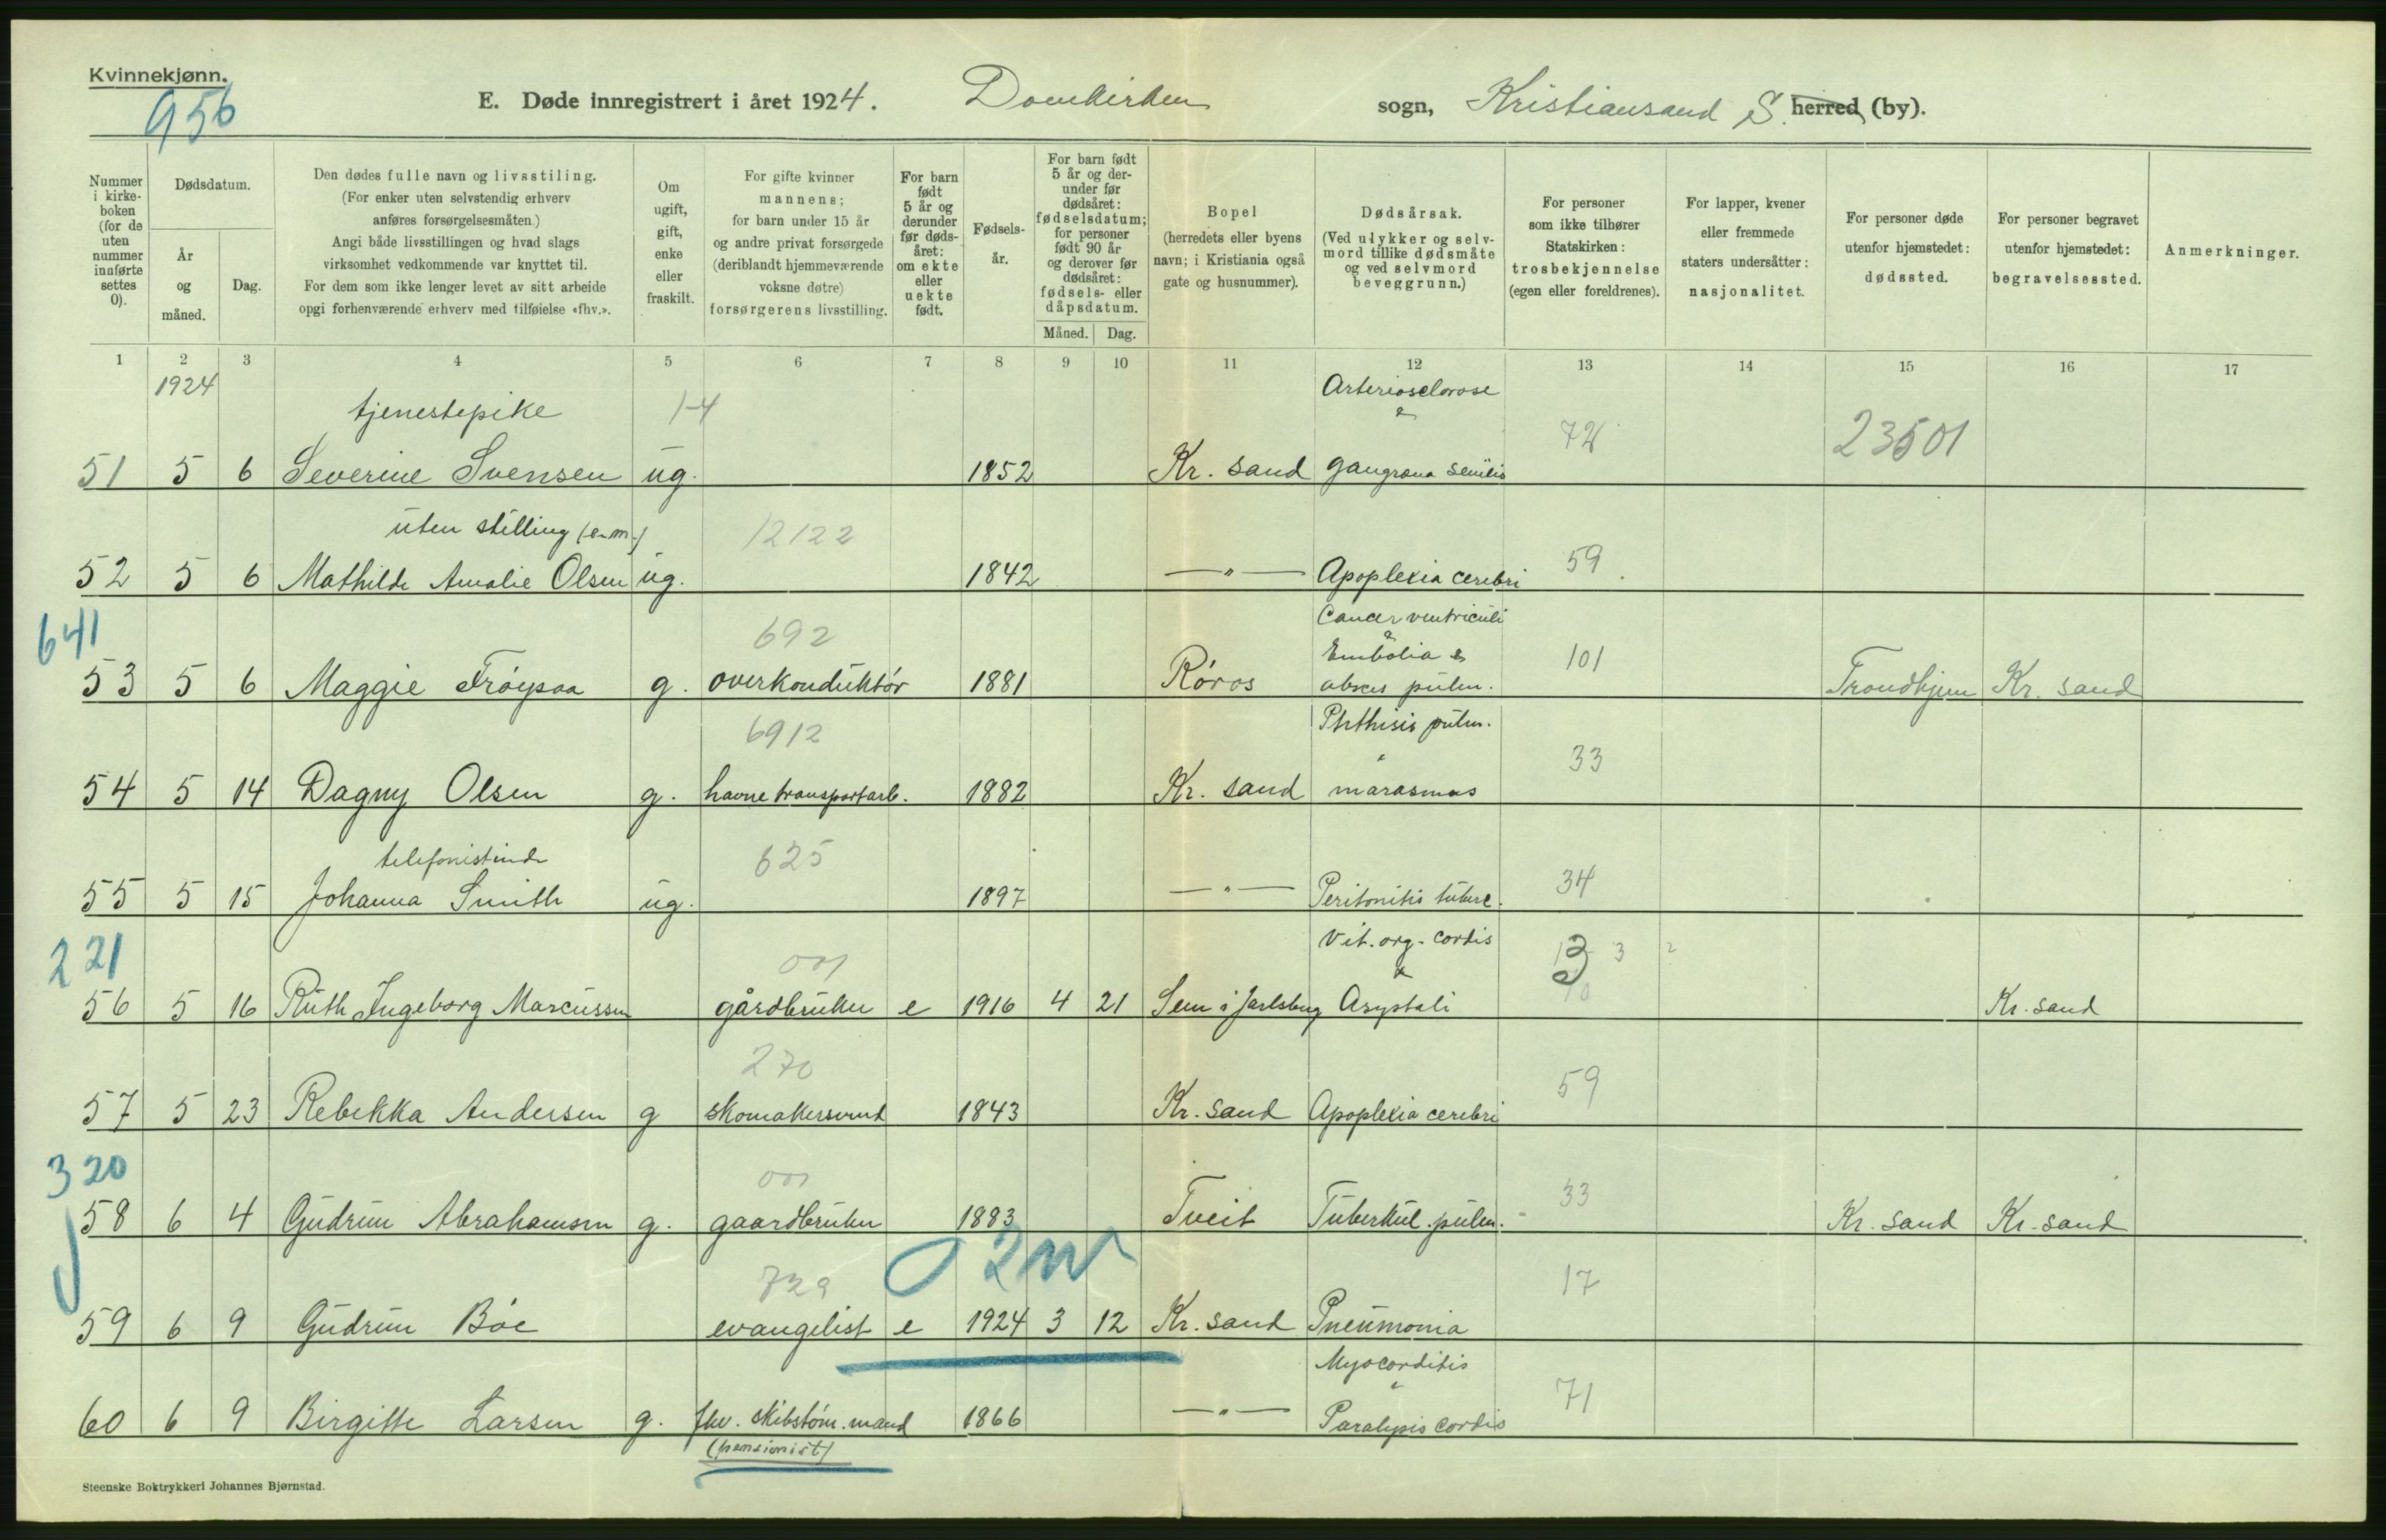 Kvinnekjønn.
956
E. Døde innregistrert i året 1924. Domkirken sogn, Kristiansand S. herred (by).
Nummer i kirkeboken (for de uten nummer innførte settes 0).
Dødsdatum.
År og måned.
Dag.
Den dødes fulle navn og livsstiling.
(For enker uten selvstendig erhverv anføres forsørgelsesmåten.)
Angi både livsstillingen og hvad slags virksomhet vedkommende var knyttet til.
For dem som ikke lenger levet av sitt arbeide opgi forhenværende erhverv med tilføielse «fhv.».
Om ugift, gift, enke eller fraskilt.
For gifte kvinner mannens; for barn under 15 år og andre privat forsørgede (deriblandt hjemmeværende voksne døtre) forsørgerens livsstilling.
For barn født 5 år og derunder før dødsåret: om ekte eller uekte født.
Fødselsår.
For barn født 5 år og derunder før dødsåret: fødselsdatum; for personer født 90 år og derover før dødsåret: fødsels- eller dåpsdatum.
Måned. Dag.
Bopel (herredets eller byens navn; i Kristiania også gate og husnummer).
Dødsårsak. (Ved ulykker og selvmord tillike dødsmåte og ved selvmord beveggrunn.)
For personer som ikke tilhører Statskirken: trosbekjennelse (egen eller foreldrenes).
For lapper, kvener eller fremmede staters undersåtter: nasjonalitet.
For personer døde utenfor hjemstedet: dødssted.
For personer begravet utenfor hjemstedet: begravelsessted.
Anmerkninger.
1 2 3 4 5 6 7 8 9 10 11 12 13 14 15 16 17
1924 Arterioselorose
tjenestepike 1-4 & 72 23501
51 5 6 Severine Svensen ug. 1852 Kr. sand gangræna senilis
uten stilling (e.m.) 12122 59
52 5 6 Mathilde Amalie Olsen ug. 1842 —"— Apoplexia cerebri
641 692 Cancer ventriculi
& Embolia & 101
53 5 6 Maggie Frøysaa g. overkonduktør 1881 Røros absces pulm. Trondhjem Kr. sand
6912 Phthisis pulm.
33
54 5 14 Dagny Olsen g. havnetransportarb. 1882 Kr. sand marasmus
telefonistinde 625 34
55 5 15 Johanna Smith ug. 1897 —"— Peritonitis tuberc.
221 001 Vit. org. cordis 3
56 5 16 Ruth Ingeborg Marcussen gårdbruker e 1916 4 21 Sem i Jarlsberg & Asystoli Kr. sand
270 59
57 5 23 Rebekka Andersen g skomakersvend 1843 Kr. sand Apoplexia cerebri
320 001 33
58 6 4 Gudrun Abrahamsen g. gaardbruker 1883 Tveit Tuberkul. pulm. Kr. sand Kr. sand
729 17
59 6 9 Gudrun Bøe evangelist e 1924 3 12 Kr. sand Pneumonia
Myocorditis
71
60 6 9 Birgitte Larsen g. fhv. skibstøm.mand 1866 —"— Paralysis cordis
(pensionist)
Steenske Boktrykkeri Johannes Bjørnstad.